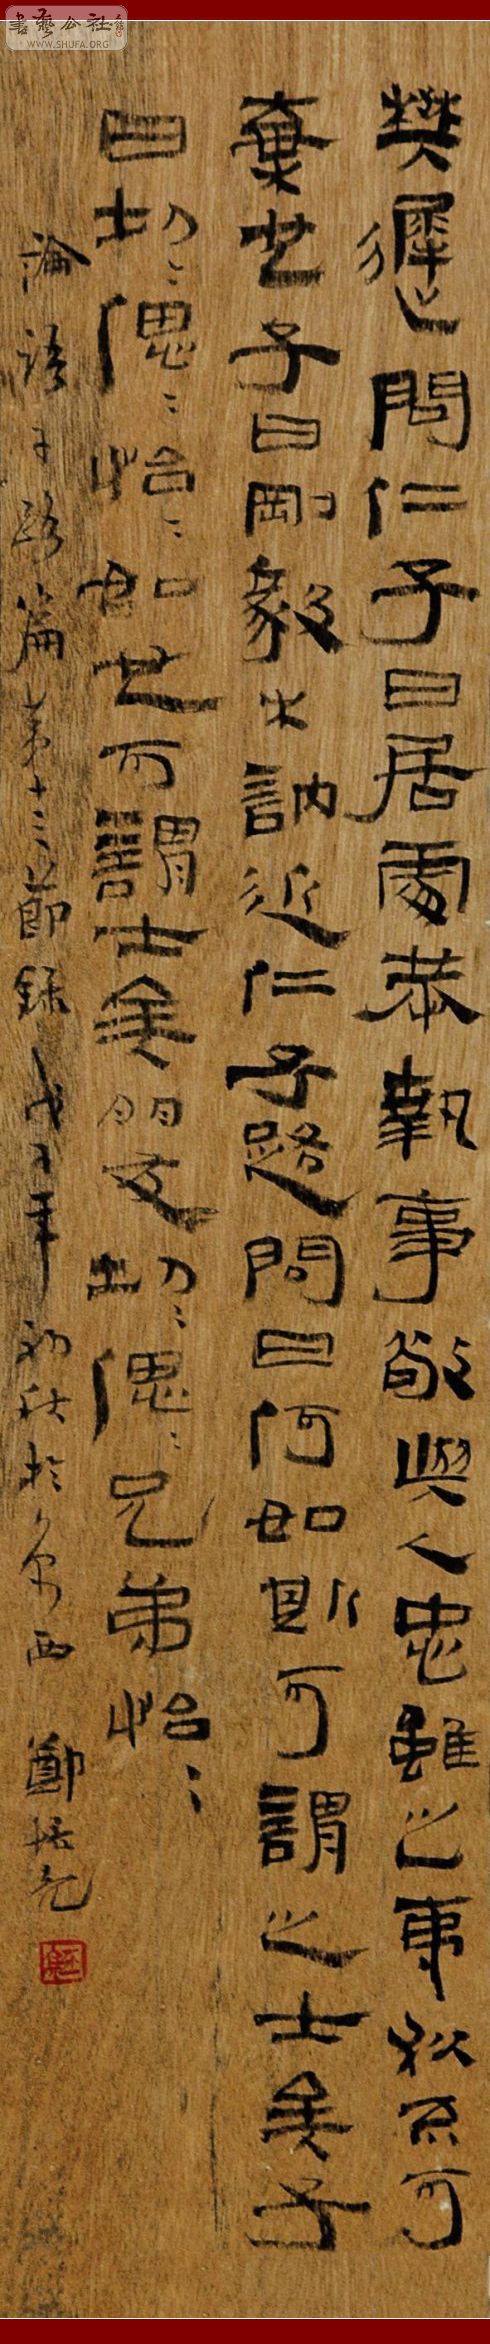 樊遲問仁子曰居處恭執事敬與人忠雖之夷狄不可
棄也子曰剛毅木訥近仁子路問曰何如則可謂之士矣子
曰切〻偲〻怡〻如也可謂士矣朋友切〻偲〻兄弟怡〻
論語子路篇第十三節錄戊子年初秋於京西 鄭培亮
書藝公社
WWW.SHUFA.ORG